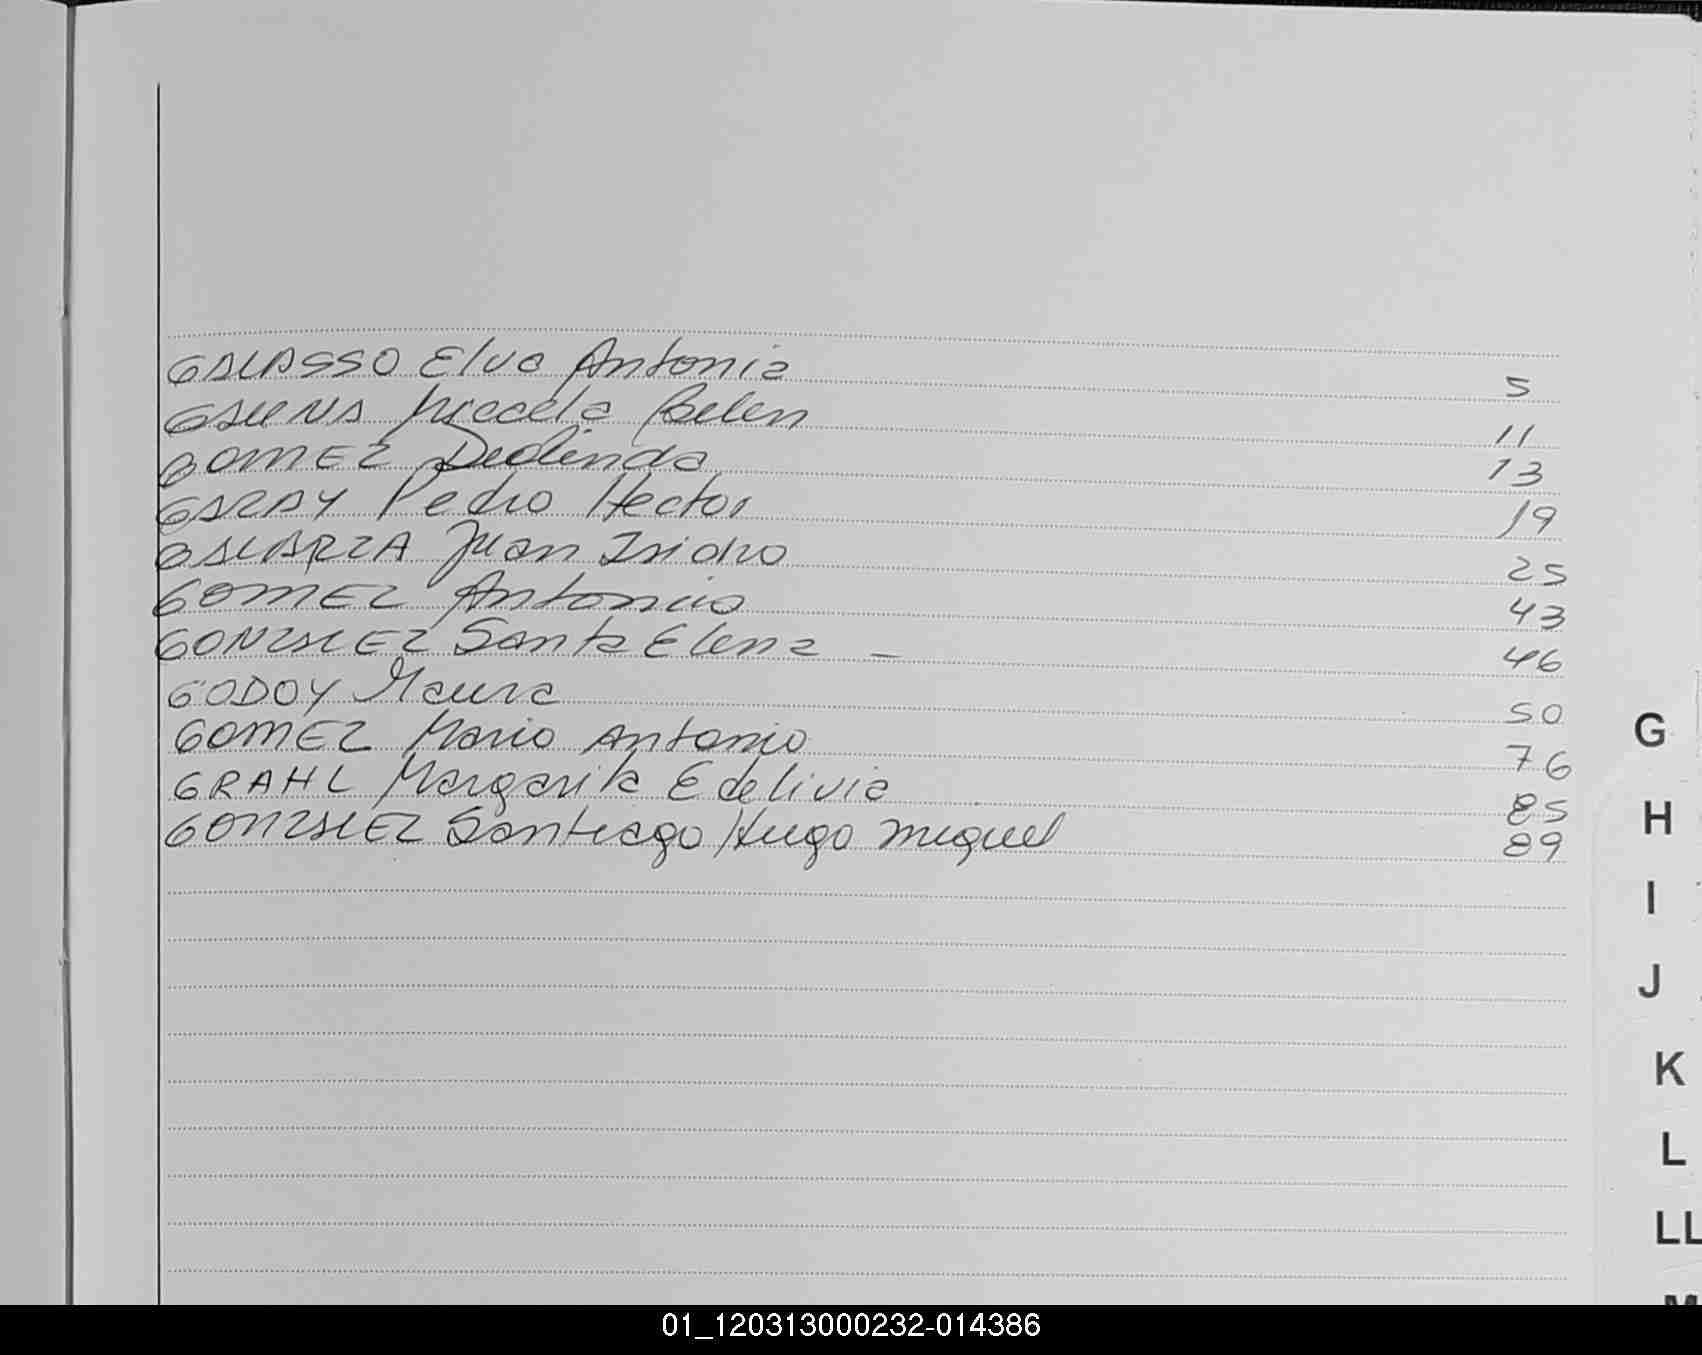 GALASSO Elva Antonia 5
Belen 11
GOMEZ Deolinda 13
GARAY Pedro Hector 19
GALARZA Juan Isidro 25
GOMEZ Antonio 43
GONZALEZ Santa Elena - 46
GODOY Maura 50
GOMEZ Mario Antonio 76
GRAHL Margarita Edelivia 85
GONZALEZ Santiago Hugo Miguel 89
G
H
I
J
K
L
LL
M
01_120313000232-014386